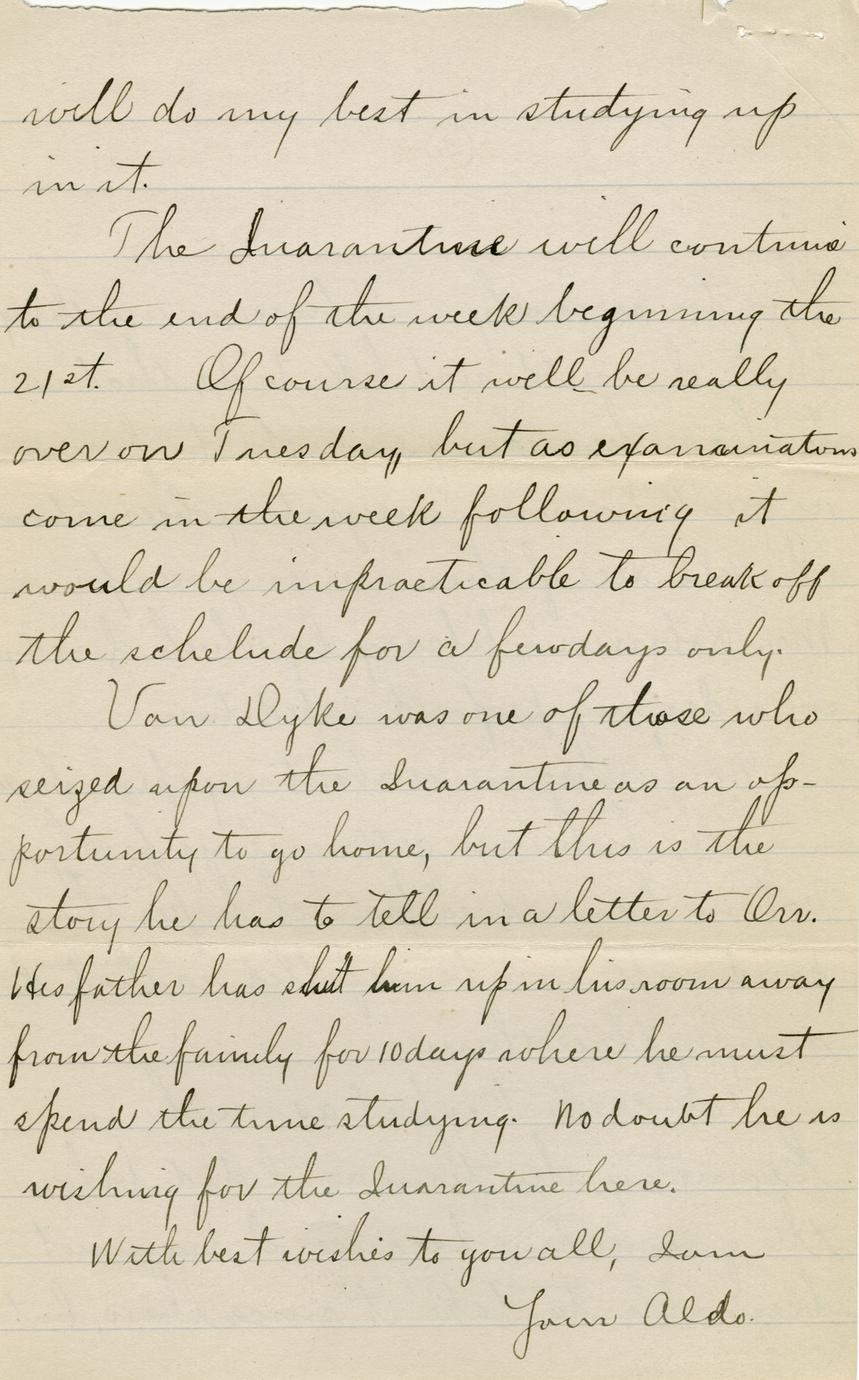 will do my best in studying up
in it.
The Quarantine will continue
to the end of the week beginning the
21st. Of course it will be really
over on Tuesday, but as examinations
come in the week following it
would be impracticable to break off
the schelude for a few days only.
Van Dyke was one of those who
seized upon the Quarantine as an op-
portunity to go home, but this is the
story he has to tell in a letter to Orr.
His father has shut him up in his room away
from the family for 10 days where he must
spend the time studying. No doubt he is
wishing for the Quarantine here.
With best wishes to you all, I am
Your Aldo.